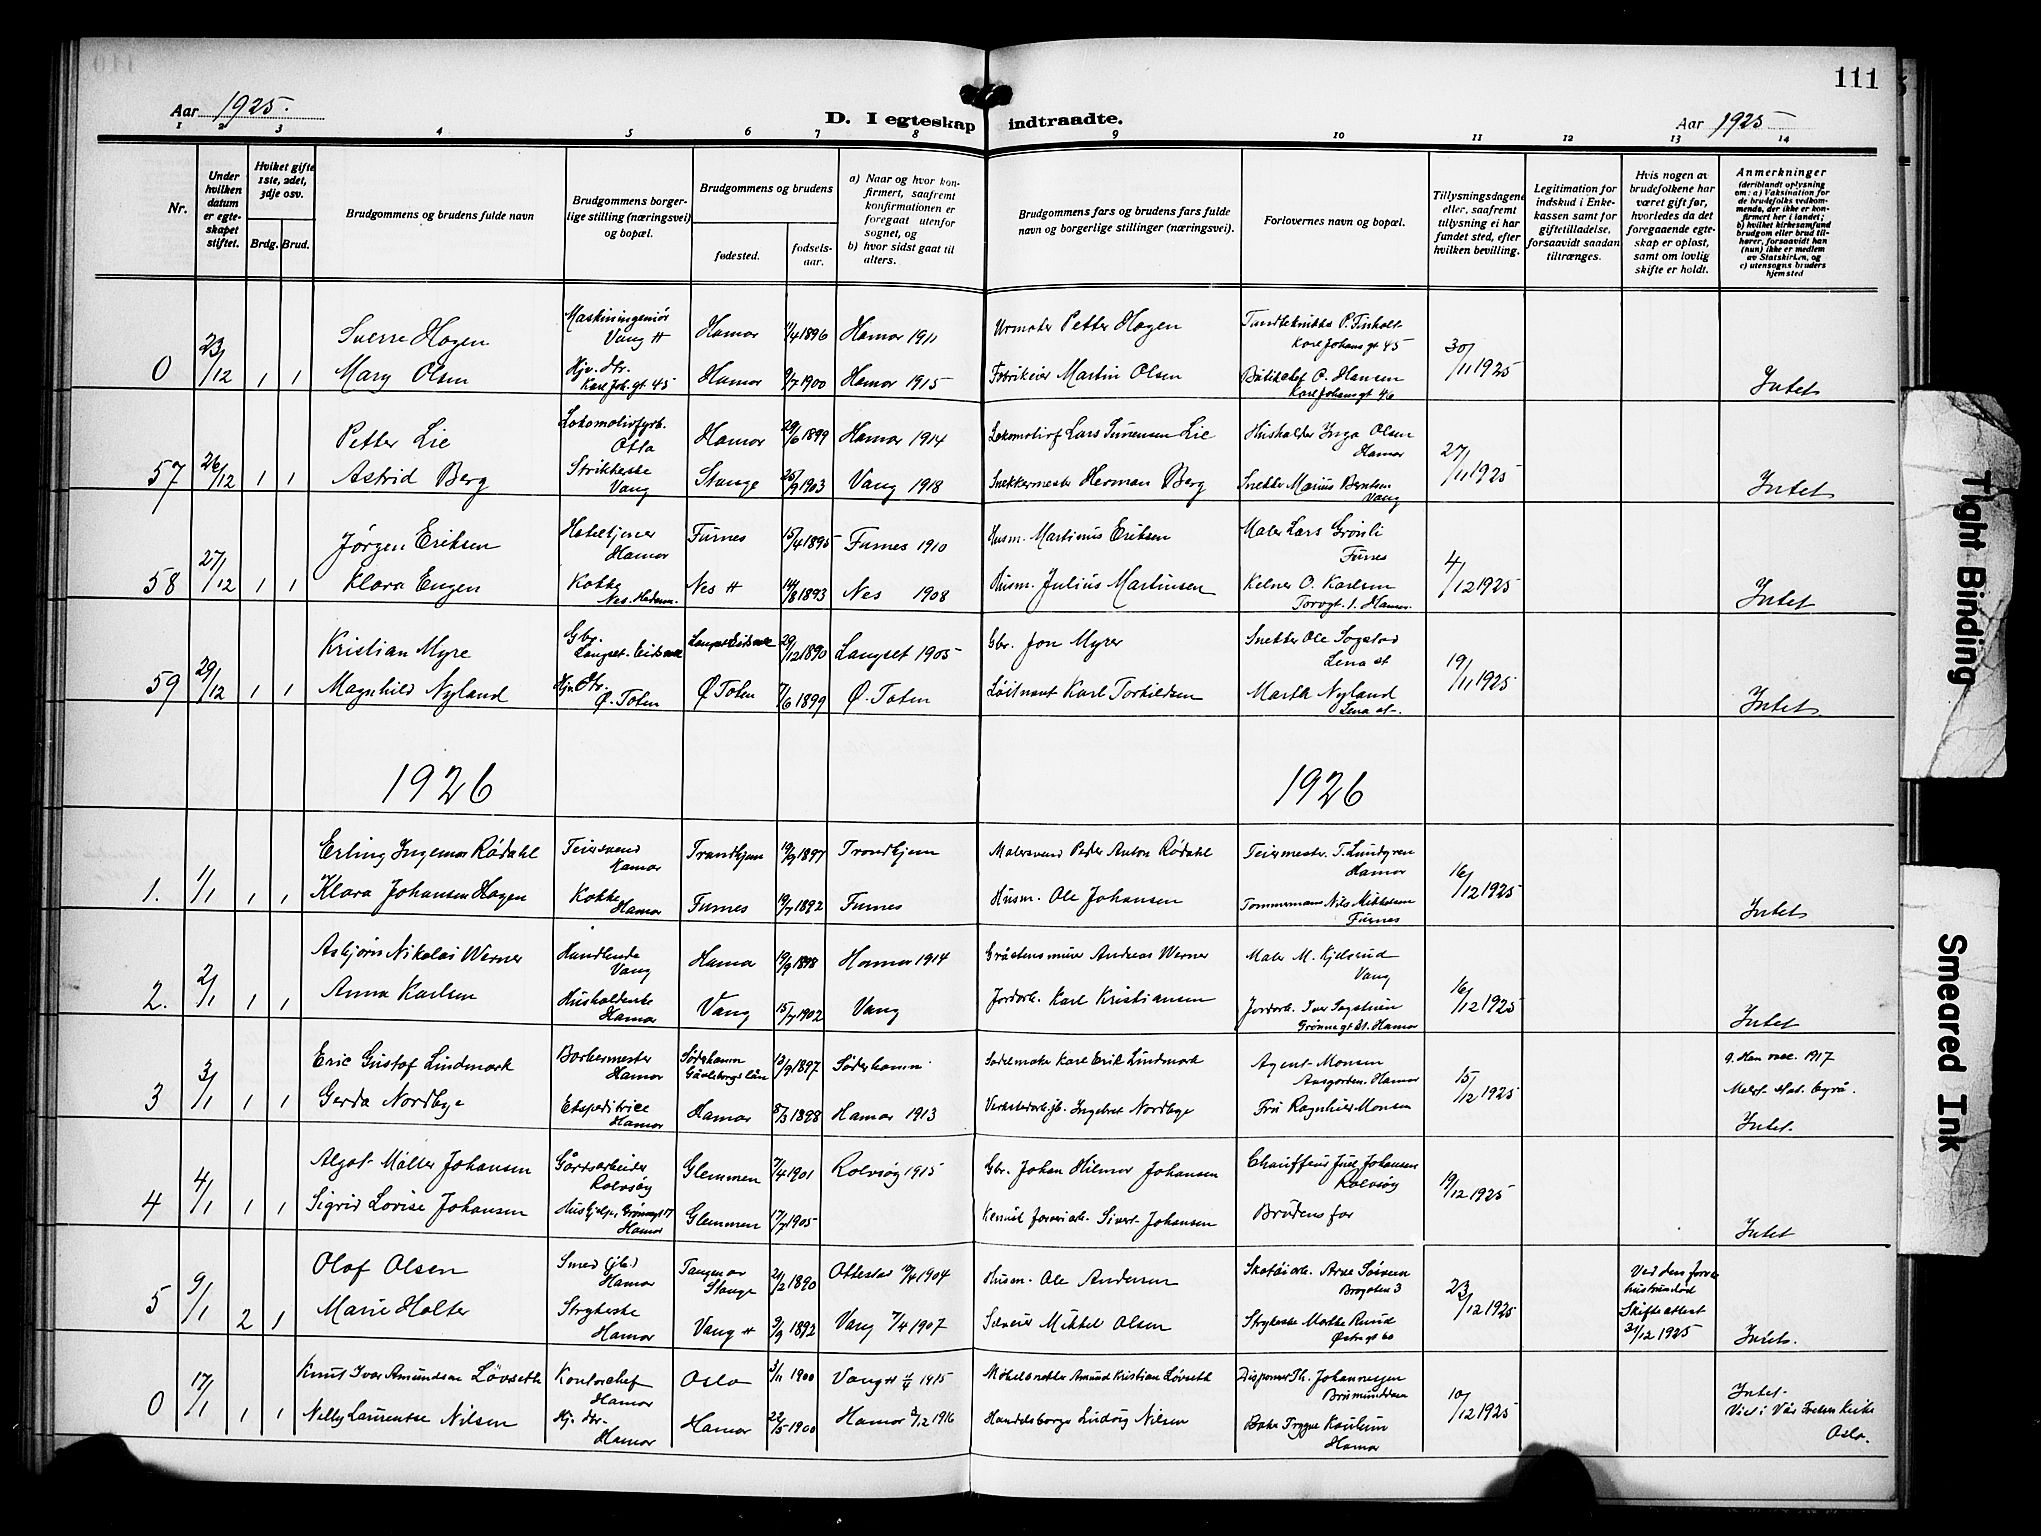 111
Aar 1925.
D. I egteskap indtraadte.
Aar 1925
1 2 3 4 5 6 7 8 9 10 11 12 13 14
Nr.
Under hvilken datum er egteskapet stiftet.
Hviket gifte 1ste, 2det, 3dje osv.
Brdg. Brud.
Brudgommens og brudens fulde navn
Brudgommens borgerlige stilling (næringsvei) og bopæl.
Brudgommens og brudens
fødested.
fødsels-aar.
a) Naar og hvor konfirmert, saafremt konfirmationen er foregaat utenfor sognet, og
b) hvor sidst gaat til alters.
Brudgommens fars og brudens fars fulde navn og borgerlige stillinger (næringsvei).
Forlovernes navn og bopæl.
Tillysningsdagene eller, saafremt tillysning ei har fundet sted, efter hvilken bevilling.
Legitimation for indskud i Enkekassen samt for giftetilladelse, forsaavidt saadan tiltrænges.
Hvis nogen av brudefolkene har været gift før, hvorledes da det foregaaende egteskap er opløst, samt om lovlig skifte er holdt.
Anmerkninger
(deriblandt oplysning om: a) Vaksination for de brudefolks vedkommende, der ikke er konfirmert her i landet; b) hvilket kirkesamfund brudgom eller brud tilhører, forsaavidt han (hun) ikke er medlem av Statskirken, og c) utensogns bruders hjemsted
0 23/12 1 1
Sverre Hagen Maskiningeniør Vang H Hamar 11/4 1896 Hamar 1911 Urmaker Petter Hagen Karl Johans gt 45 30/11 1925
Mary Olsen Hjv. dtr. Karl Joh. gt. 45 Hamar 9/7 1900 Hamar 1915 Fabrikeier Martin Olsen O. Hansen Karl Johans gt 46 Intet
57 26/12 1 1
Petter Lie Lokomotivfyrb. Otta Hamar 29/6 1899 Hamar 1914 Lars Lie Inga Olsen Hamar 27/11 1925
Astrid Berg Strikkerske Vang Stange 25/9 1903 Vang 1918 Snekkermester Herman Berg Snekker Marius Berntsen Vang Intet
58 27/12 1 1
Jørgen Eriksen Hoteltjener Hamar Furnes 15/4 1895 Furnes 1910 Husm. Martinus Eriksen Maler Lars Grønli Furnes 4/12 1925
Klara Engen Kokke Nes. Hedem. Nes H 14/8 1893 Nes 1908 Husm. Julius Martinsen Kelner O. Karlsen Torvgt. 1. Hamar Intet
59 29/12 1 1
Kristian Myre Gbr. Langset. Eidsvoll 29/12 1890 Langset 1905 Gbr. Jon Myrer Snekker Ole Sogstad Lena st 19/11 1925
Magnhild Nyland Hjv. dtr. Ø. Toten Ø Toten 7/6 1899 Ø. Toten Løitnant Karl Torkildsen Nyland Lena st. Intet
1926 1926
1. 1/1 1 1
Erling Ingemar Rødahl Feiersvend Hamar Trondhjem 19/9 1897 Trondhjem Malersvend Peder Anton Rødahl Feiermester. T. Lundgren Hamar 16/12 1925
Klara Johansen Hagen Kokke Hamar Furnes 19/7 1892 Furnes Husm. Ole Johansen Tømmermann Nils Mikkelsen Furnes Intet
2. 2/1 1 1
Asbjørn Nikolai Werner Handlende Vang Hamar 19/9 1898 Hamar 1914 Andreas Werner Maler M. Kjelsrud Vang 16/12 1925
Anna Karlsen Husholderske Hamar Vang 15/7 1902 Vang Jordarb. Karl Kristiansen Jordarb. Iver Hamar Intet
3 3/1 1 1
Eric Gustaf Lindmark Barbermester Hamar Søderhamn Gävleborgs län 13/9 1897 Söderhamn Sadelmaker Karl Erik Lindmark Agent Monsen Hamar 15/12 1925 1917
Gerda Nordbye Ekspeditrice Hamar Hamar 8/3 1898 Hamar 1913 Ingebret Nordbye Fru Monsen Intet.
4 4/1 1 1
Algot Møller Johansen Gårdsarbeider Rolvsøy Glemmen 7/4 1901 Rolvsøy 1915 Gbr. Johan Hilmar Johansen Chauffeur Juel Johansen Rolvsøy 19/12 1925
Sigrid Lovise Johansen Hushjelp, Grønnegt 17 Hamar Glemmen 17/7 1905 Sivert Johansen Brudens far Intet
5 9/1 2 1
Olof Olsen Smed Hamar Tangen av Stange 21/2 1890 Ottestad 1904 Husm. Ole Andersen Skotøiarb. Arne 23/12 1925 Ved den forrige hustrus død Skifteattest 31/12 1925
Marie Holter Strykerske Hamar Vang H 9/9 1892 Vang 7/4 1907 Selveier Mikkel Olsen Strykerske Marthe Ruud Østregt 60 Intet.
0 17/1 1 1
Knut Ivar Amundsen Løvseth Kontorchef Hamar Oslo 3/11 1900 Vang H 11/4 1915 Møbelsnekker Amund Kristian Løvseth Disponent Th. Johannessen Brumunddal 10/12 1925 Intet
Nelly Laurentse Nilsen Hjv. dtr. Hamar Hamar 22/5 1900 Hamar 3/12 1916 Handelsborger Ludvig Nilsen Baker Trygve Hamar Viet i Vår Frelsers Kirke Oslo.
Tight Binding
Smeared Ink